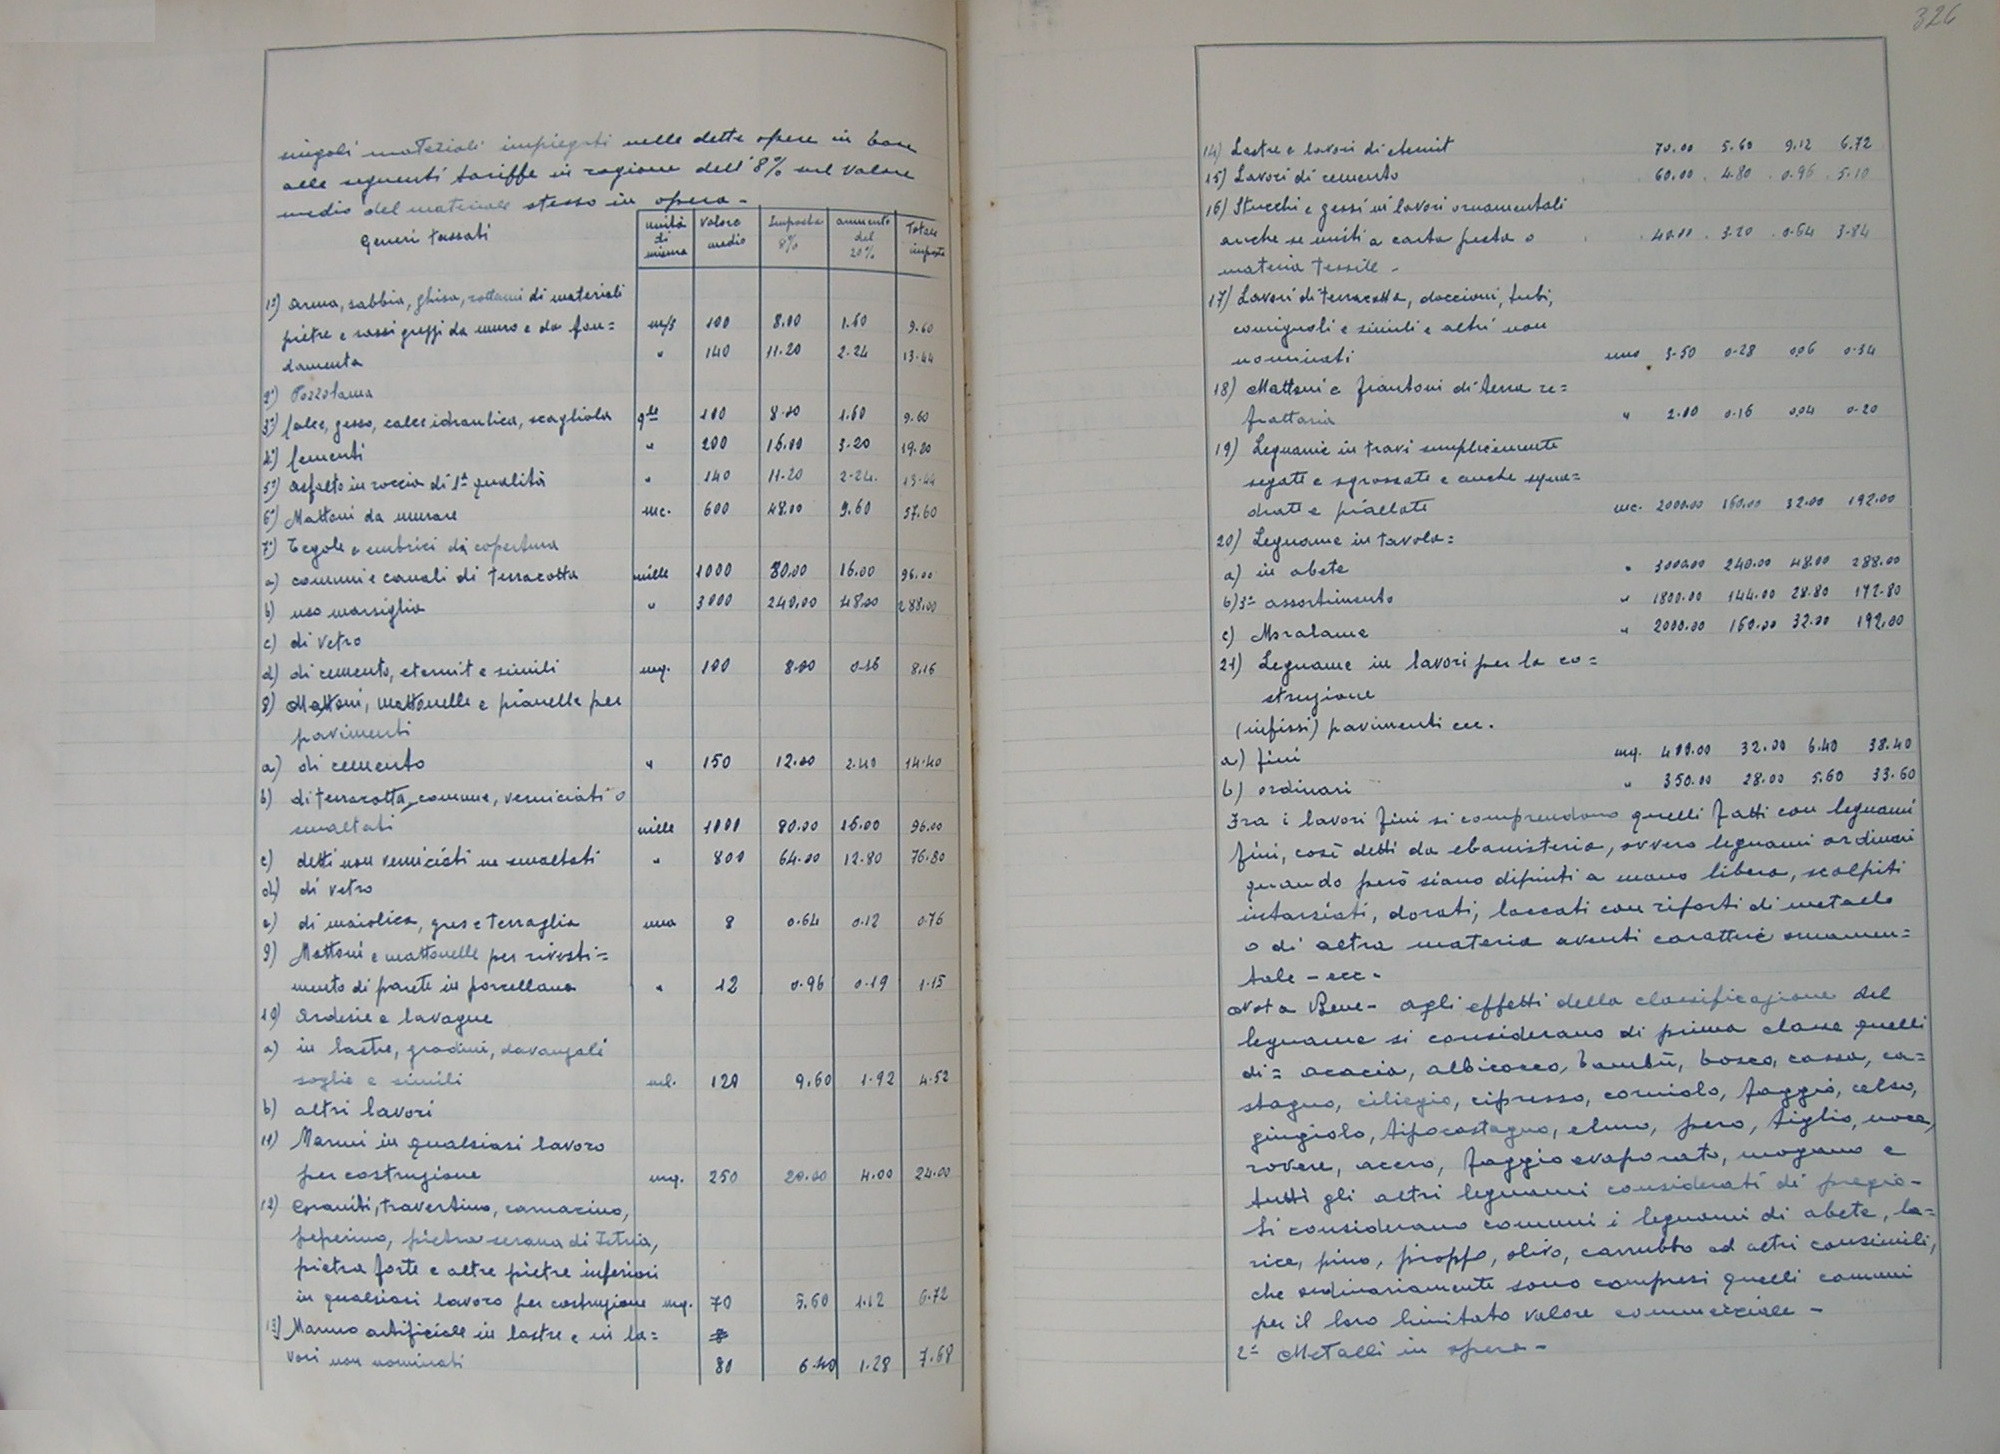 326
singoli materiali impiegati nelle dette opere in base
alle seguenti tariffe in ragione dell'8% sul valore
medio del materiale stesso in opera -
Generi tassati | unità di misura | valore medio | Imposta 8% | aumento del 20% | Totale imposta
1°) arena, sabbia, ghisa, rottami di materiali
pietre e sassi greggi da muro e da fon= m/3 100 8.00 1.60 9.60
damenta " 140 11.20 2.24 13.44
2°) Pozzolana
3°) Calce, gesso, calce idraulica, scagliola q.le 100 8.00 1.60 9.60
4°) Cementi " 200 16.00 3.20 19.20
5°) asfalto in roccia di 1ª qualità " 140 11.20 2.24. 13.44
6°) Mattoni da murare mc. 600 48.00 9.60 57.60
7°) Tegole e embrici di copertura
a) comuni e canali di terracotta mille 1000 80.00 16.00 96.00
b) uso marsiglia " 3000 240.00 48.00 288.00
c) di vetro
d) di cemento, eternit e simili mq. 100 8.00 0.16 8.16
8) Mattoni, mattonelle e pianelle per
pavimenti
a) di cemento " 150 12.00 2.40 14.40
b) di terracotta comune, verniciati o
smaltati mille 1000 80.00 16.00 96.00
c) detti non verniciati ne smaltati " 800 64.00 12.80 76.80
d) di vetro
e) di maiolica, gres e terraglia una 8 0.64 0.12 0.76
9) Mattoni e mattonelle per rivesti=
mento di parete in porcellana " 12 0.96 0.19 1.15
10) Ardesie e lavagne
a) in lastre, gradini, davanzali
soglie e simili ml. 120 9.60 1.92 4.52
b) altri lavori
11) Marmi in qualsiasi lavoro
per costruzione mq. 250 20.00 4.00 24.00
12) Graniti, travertino, carnacino,
peperino, pietra serana di Istria,
pietra forte e altre pietre inferiori
in qualsiasi lavoro per costruzione mq. 70 5.60 1.12 6.72
13) Marmo artificiale in lastre e in la=
vori non nominati 80 6.40 1.28 7.68
14) Lastre e lavori di eternit 70.00 5.60 9.12 6.72
15) Lavori di cemento 60.00 4.80 0.96 5.10
16) Stucchi e gessi in lavori ornamentali
anche se misti a carta pesta o 40.00 3.20 0.64 3.84
materia tessile -
17) Lavori di terracotta, doccioni, tubi,
comignoli e simili e altri non
nominati uno 3.50 0.28 0.06 0.34
18) Mattoni e frantoni di terra re=
frattaria " 2.00 0.16 0.04 0.20
19) Legname in travi semplicemente
segate e sgrossate e anche squa=
drate e piallate mc. 2000.00 160.00 32.00 192.00
20) Legname in tavola =
a) in abete " 3000.00 240.00 48.00 288.00
b) 3ª assortimento " 1800.00 144.00 28.80 172.80
c) Moralame " 2000.00 160.00 32.00 192.00
21) Legname in lavori per la co=
struzione
(infissi) pavimenti ecc.
a) fini mq. 400.00 32.00 6.40 38.40
b) ordinari " 350.00 28.00 5.60 33.60
Fra i lavori fini si comprendono quelli fatti con legnami
fini, così detti da ebanisteria, ovvero legnami ordinari
quando però siano dipinti a mano libera, scolpiti
intarsiati, dorati, laccati con riporti di metallo
o di altra materia aventi carattere ornamen=
tale - ecc -
Nota Bene - agli effetti della classificazione del
legname si considerano di prima classe quelli
di = acacia, albicocco, bambù, bosco, cassa, ca=
stagno, ciliegio, cipresso, corniolo, faggio, celso,
giuggiolo, tipocastagno, olmo, pero, tiglio, noce,
rovere, acero, faggio evaporato, mogano e
tutti gli altri legnami considerati di pregio -
Si considerano comuni i legnami di abete, la=
rice, pino, pioppo, olivo, carrubbo ed altri consimili,
che ordinariamente sono compresi quelli comuni
per il loro limitato valore commerciale -
2ª Metalli in opera -